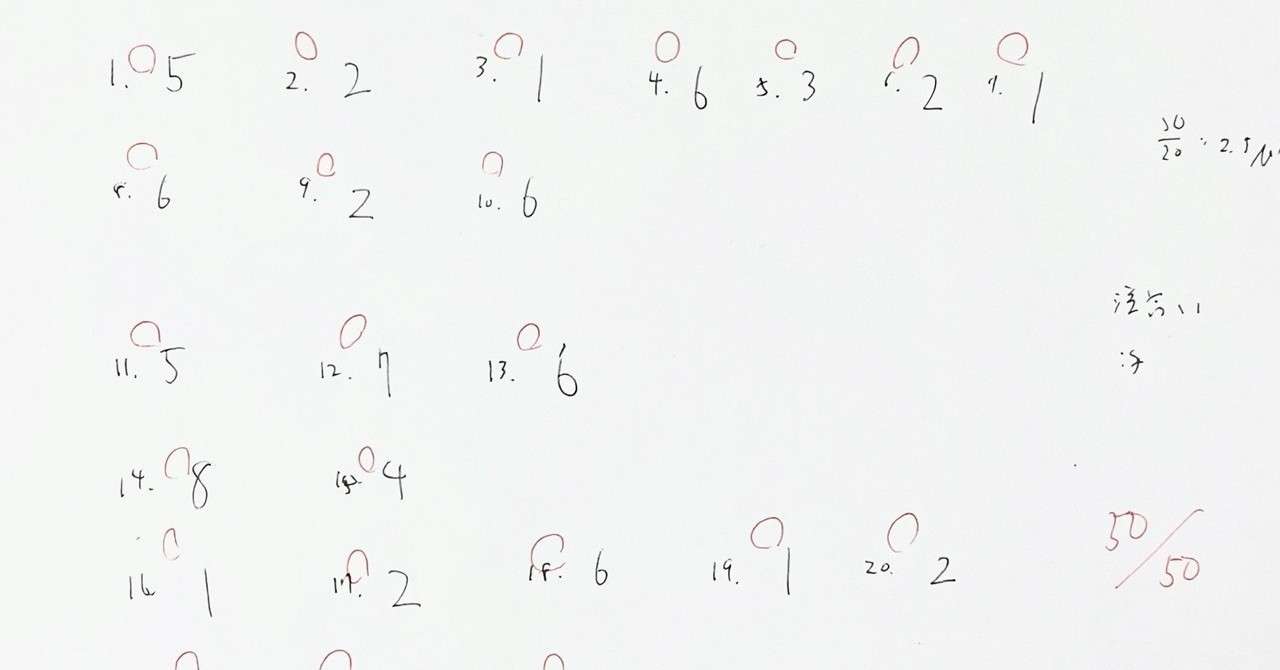 1. 5 2. 2 3. 1 4. 6 5. 3 6. 2 7. 1
50/20
8. 6 9. 2 10. 6
11. 5 12. 7 13. 6
14. 8 15. 4
16. 1 17. 2 18. 6 19. 1 20. 2
50/50